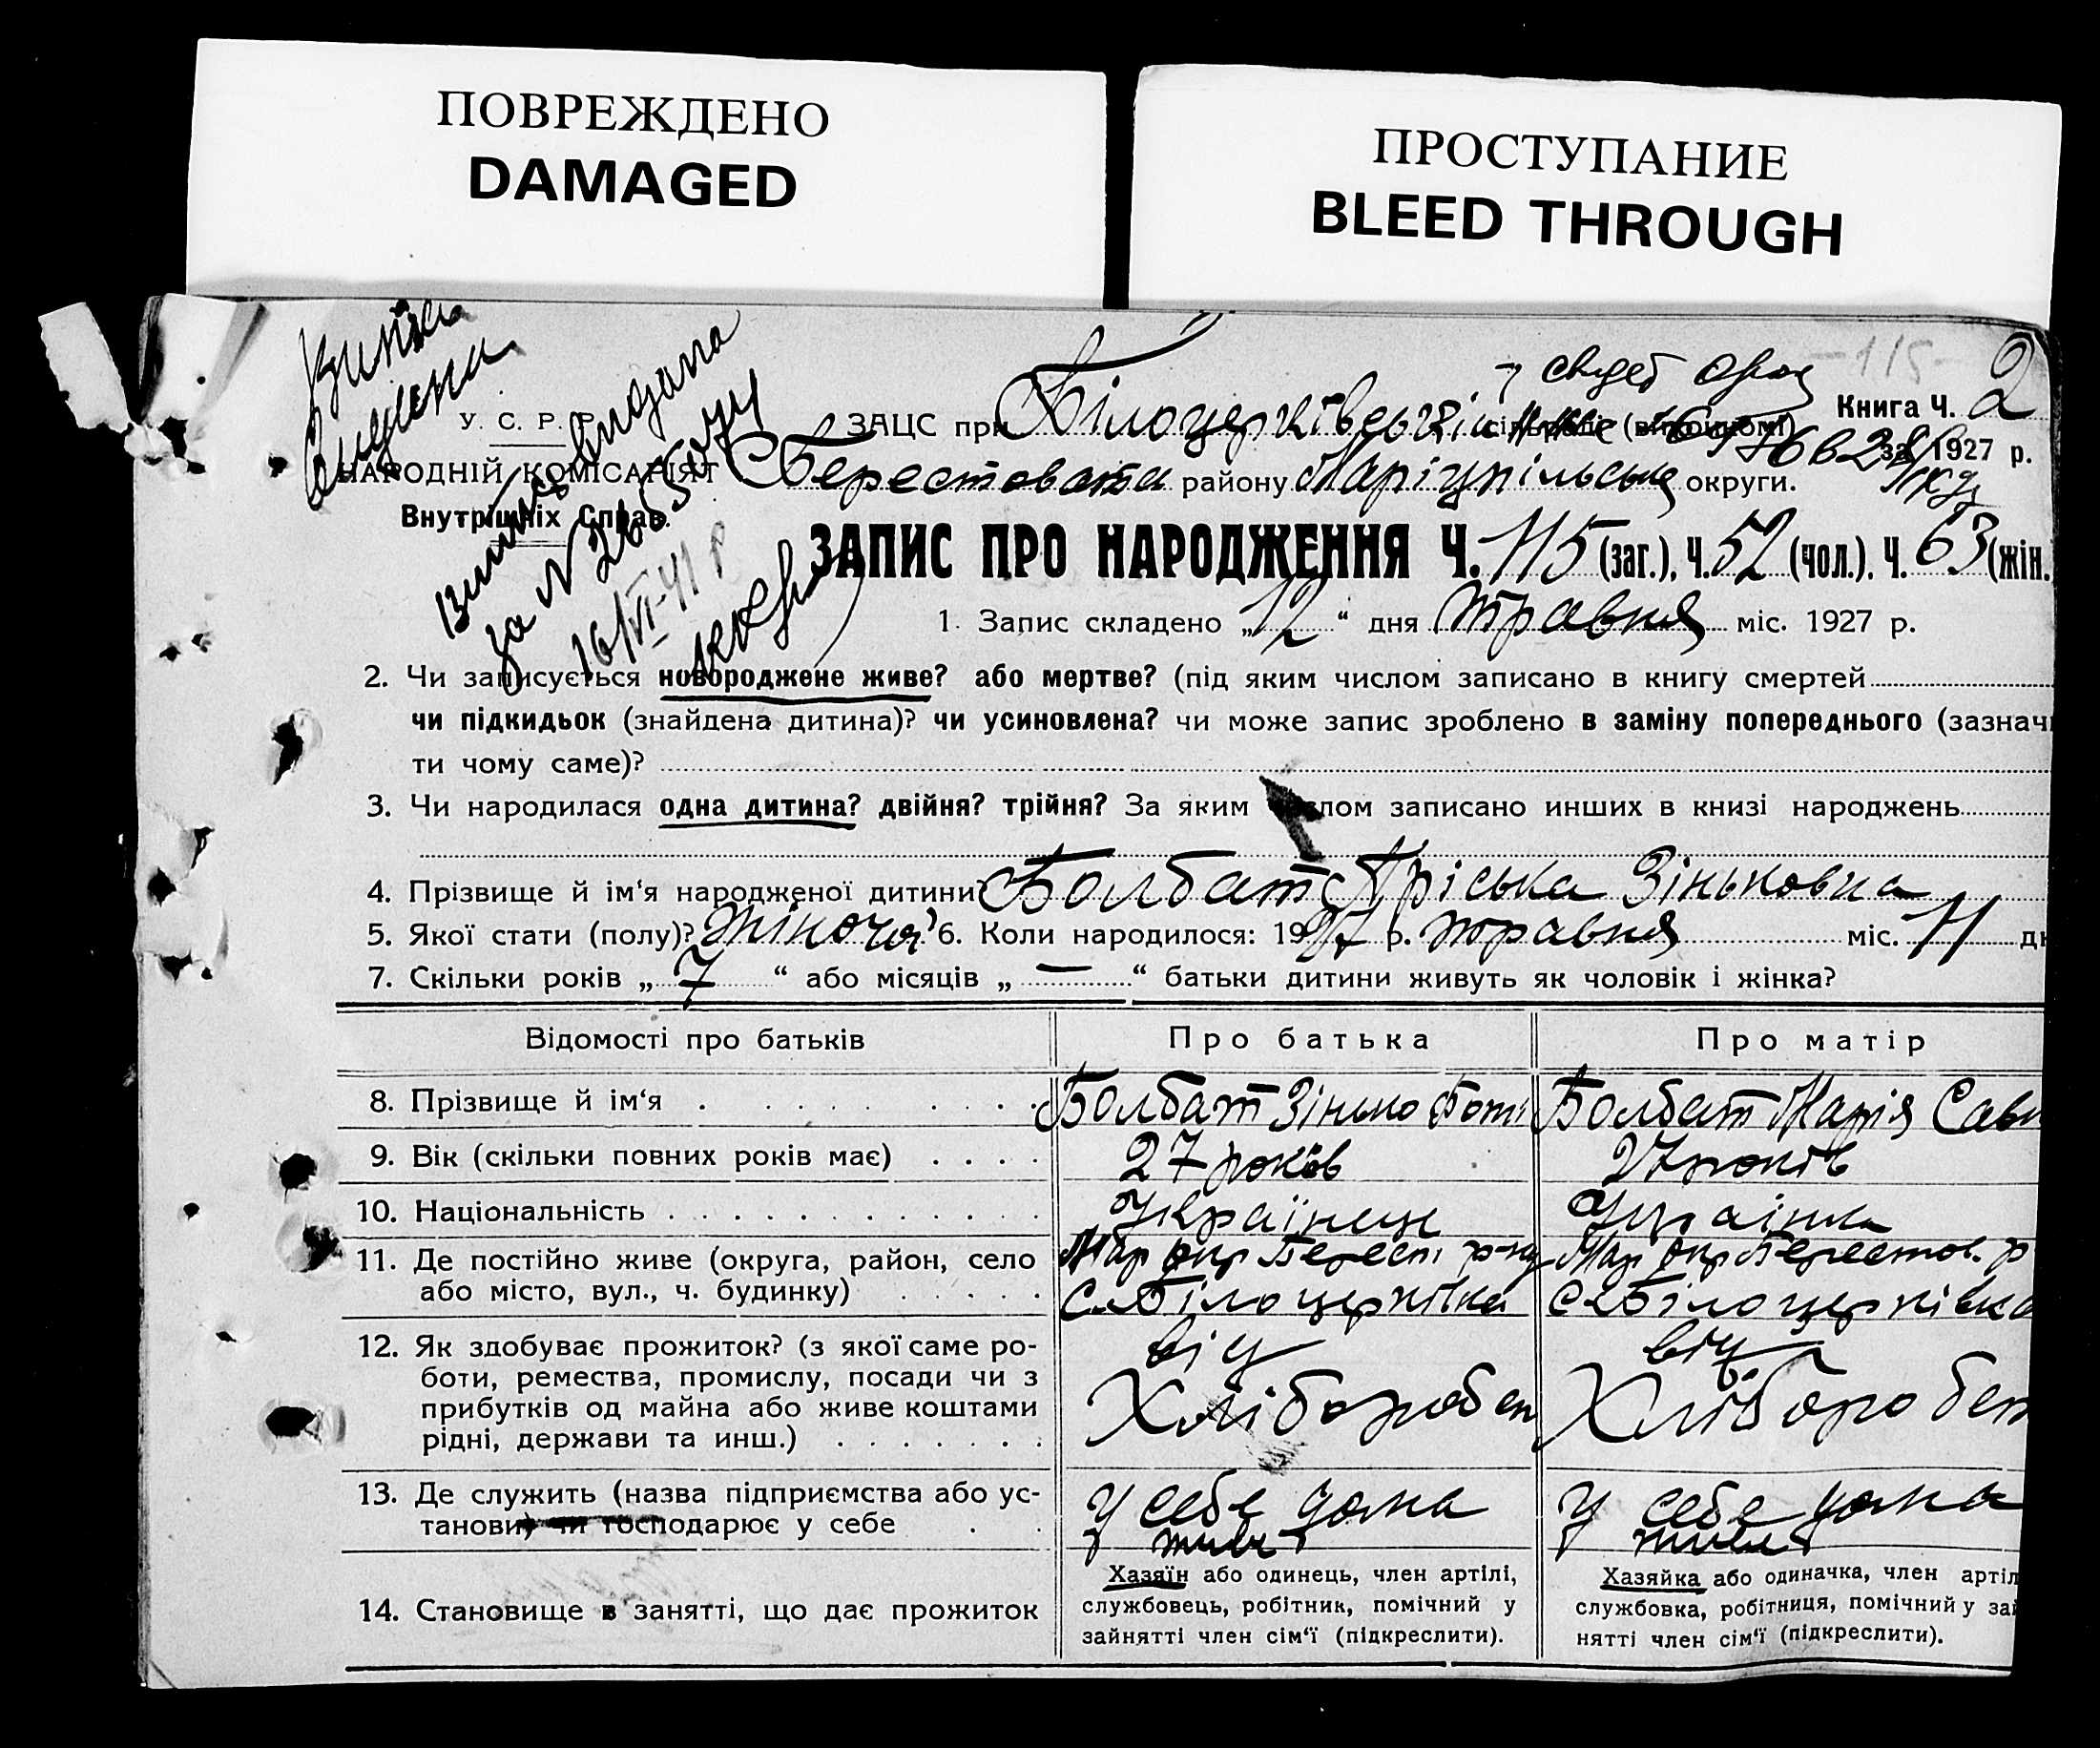 ПОВРЕЖДЕНО
DAMAGED
ПРОСТУПАНИЕ
BLEED THROUGH
-115-
Книга Ч. 2
за 1927 р.
У. С. Р. Р.
НАРОДНІЙ КОМІСАРІЯТ
Внутрішніх Справ.
видана
за № 2655
16/VI-41 р
ЗАЦС при Білоцерківській сільраді (виконкомі)
Берестовата району Маріупільська округи.
ЗАПИС ПРО НАРОДЖЕННЯ Ч. 115 (заг.), Ч. 52 (чол.). Ч. 63 (жін.
1. Запис складено „12“ дня травня міс. 1927 р.
2. Чи записується новороджене живе? або мертве? (під яким числом записано в книгу смертей
чи підкидьок (знайдена дитина)? чи усиновлена? чи може запис зроблено в заміну попереднього (зазначи
ти чому саме)?
3. Чи народилася одна дитина? двійня? трійня? За яким числом записано инших в книзі народжень
4. Прізвище й ім‘я народженої дитини? Болбат Пріська Зіньковна
5. Якої стати (полу)? жіночої 6. Коли народилося: 1927 р. травня міс. 11 дн
7. Скільки років „7“ або місяців „—“ батьки дитини живуть як чоловік і жінка?
Відомості про батьків Про батька Про матір
8. Прізвище й ім‘я Болбат Зінько Болбат Марія Сави
9. Вік (скільки повних років має) 27 років 27 років
10. Національність Українець Українка
11. Де постійно живе (округа, район, село Мар окр Берест р-ну Мар окр Берестов. р
або місто, вул., ч. будинку) с. Білоцерківка с. Білоцерківка
12. Як здобуває прожиток? (з якої саме ро-
боти, ремества, промислу, посади чи з Хлібороб Хлібороб
прибутків од майна або живе коштами
рідні, держави та инш.)
13. Де служить (назва підприємства або ус- у себе дома у себе дома
танови) чи господарює у себе живе живе
14. Становище в занятті, що дає прожиток
Хазяїн або одинець, член артілі,
службовець, робітник, помічний у
зайнятті член сім‘ї (підкреслити).
Хазяйка або одиначка, член артіл
службовка, робітниця, помічний у зай
нятті член сім‘ї (підкреслити).